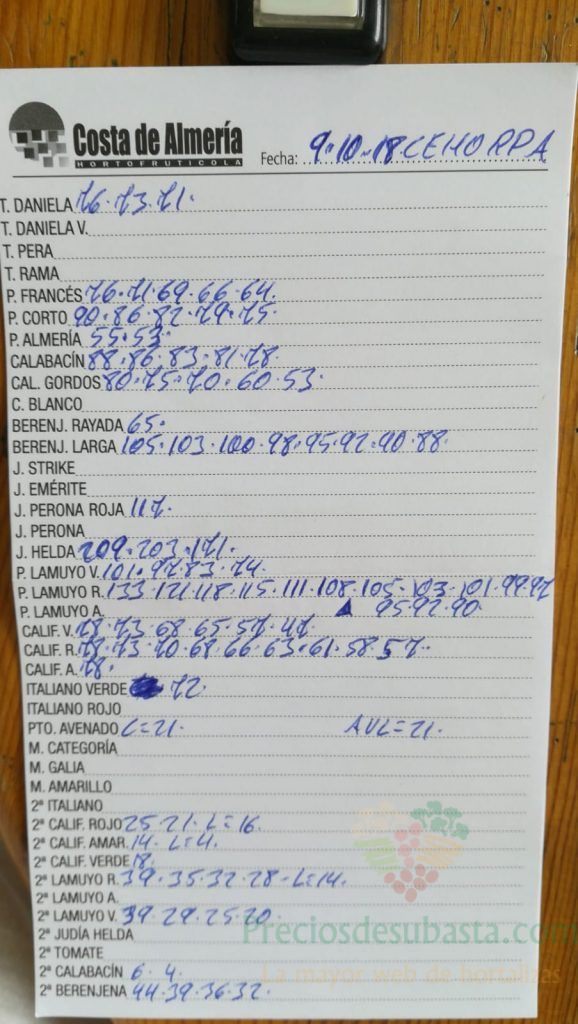 Costa de Almería
HORTOFRUTICOLA
Fecha: 9-10-18 CEHORPA
T. DANIELA 76-73-71.
T. DANIELA V.
T. PERA
T. RAMA
P. FRANCÉS 76-71-69-66-64.
P. CORTO 90-86-82-79-75
P. ALMERÍA 55-53
CALABACÍN 88-86-83-81-78
CAL. GORDOS 80-75-70-60-53.
C. BLANCO
BERENJ. RAYADA 65.
BERENJ. LARGA 105-103-100-98-95-92-90-88.
J. STRIKE
J. EMÉRITE
J. PERONA ROJA 117.
J. PERONA
J. HELDA 209-203-171.
P. LAMUYO V. 101-97-83-74
P. LAMUYO R. 133-121-118-115-111-108-105-103-101-99-97
P. LAMUYO A. 95-92-90.
CALIF. V. 78-73-68-65-57-47.
CALIF. R. 78-73-70-68-66-63-61-58-57.
CALIF. A. 78.
ITALIANO VERDE 72.
ITALIANO ROJO
PTO. AVENADO C=21. AVL=21.
M. CATEGORÍA
M. GALIA
M. AMARILLO
2ª ITALIANO
2ª CALIF. ROJO 25-21-L=16.
2ª CALIF. AMAR. 14-L=4.
2ª CALIF. VERDE 18.
2ª LAMUYO R. 39-35-32-28-L=14.
2ª LAMUYO A.
2ª LAMUYO V. 39-29-25-20
2ª JUDÍA HELDA
Preciosdesubasta.com
2ª TOMATE
2ª CALABACÍN 6-4.
La mayor web de hortalizas
2ª BERENJENA 44-39-36-32.